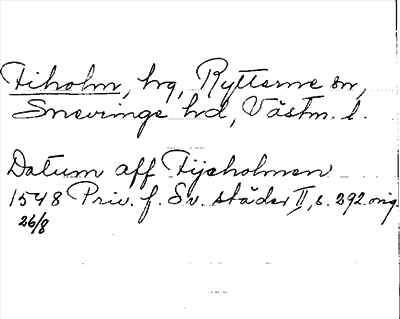 Fiholm, hg, Rytterne sn,
Snevringe hd, Västm. l.
Datum aff Fijeholmen
1548 Priv. f. Sv. städer II, s. 292. orig.
26/8